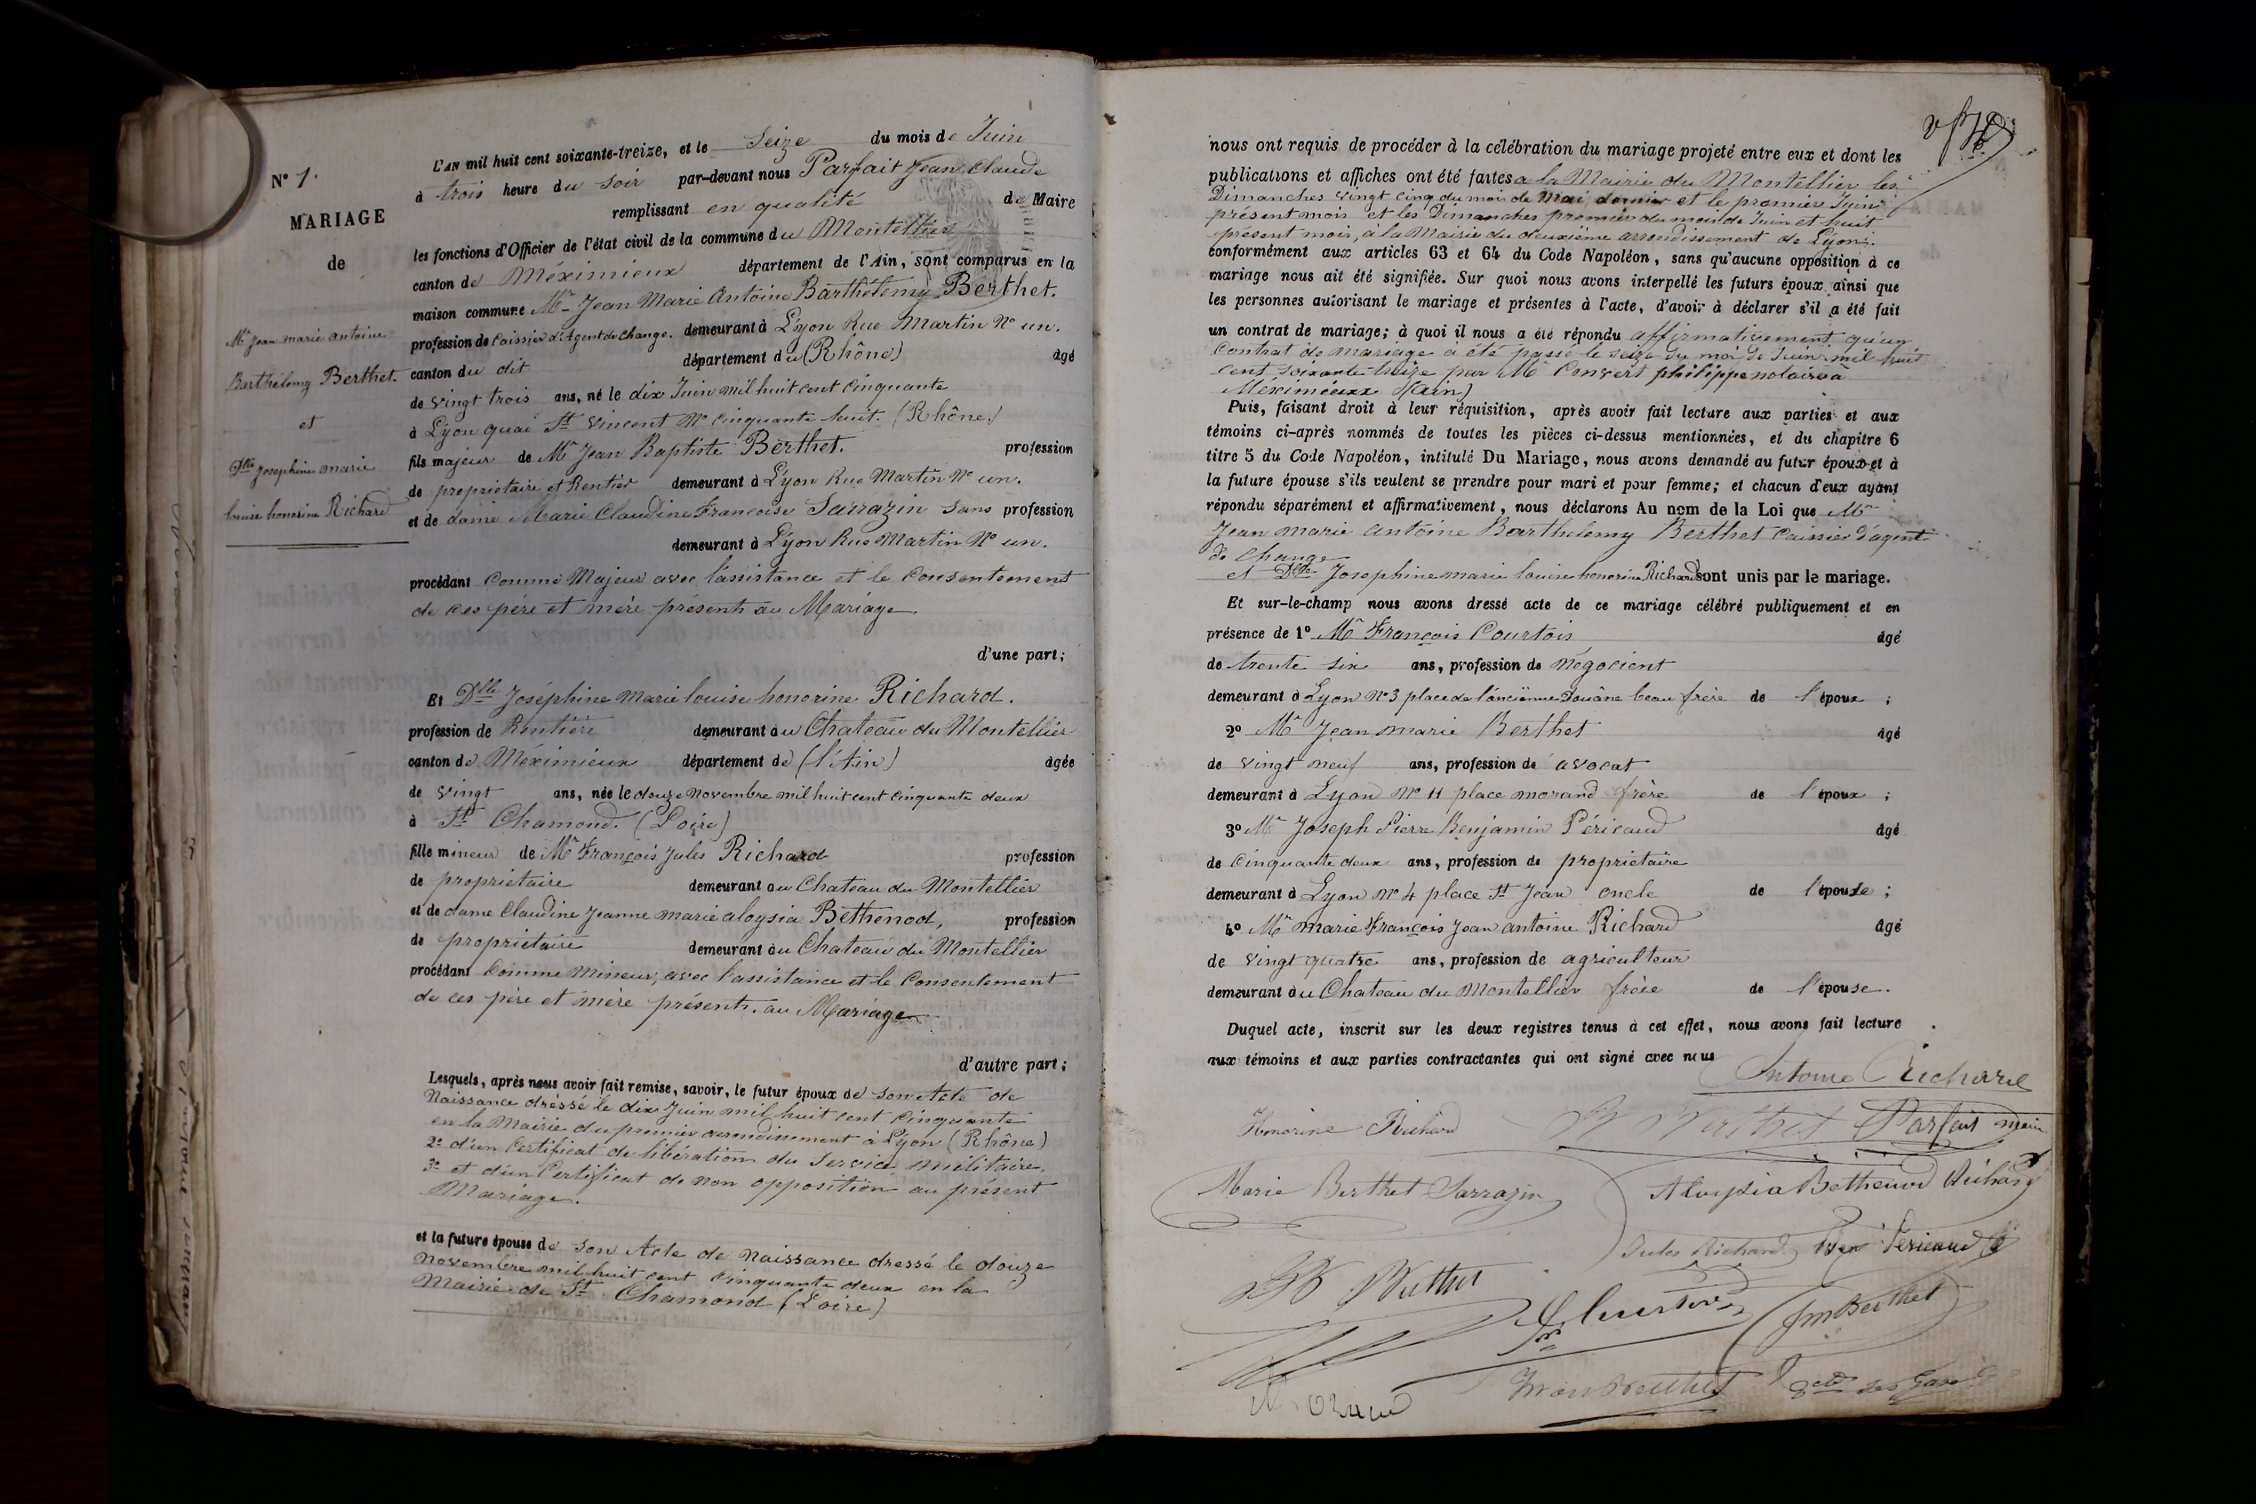 N° 7.
MARIAGE
de
Mr Jean marie antoine
Barthélemy Berthet.
et
Dlle Josephine marie
louise honorine Richard
L'AN mil huit cent soixante-treize, et le Seize du mois de Juin
à trois heure du soir par-devant nous Parfait Jean Claude
remplissant en qualité de Maire
les fonctions d'Officier de l'état civil de la commune du Montellier
canton de Méximieux département de l'Ain, sont comparus en la
maison commune Mr Jean Marie Antoine Barthélemy Berthet.
profession de Caissier d'Agent de Change. demeurant à Lyon Rue Martin No un.
canton du dit département du (Rhône) âgé
de vingt trois ans, né le dix Juin mil huit cent cinquante
à Lyon quai St Vincent No cinquante huit. (Rhône)
fils majeur de Mr Jean Baptiste Berthet. profession
de propriétaire et Rentier demeurant à Lyon Rue Martin No un.
et de dame Marie Claudine Françoise Sarrazin Sans profession
demeurant à Lyon Rue Martin No un.
procédant comme Majeur avec l'assistance et le Consentement
de ces père et mère présents au Mariage
d'une part;
Et Dlle Joséphine Marie louise honorine Richard.
profession de Rentière demeurant au Chateau du Montellier
canton de Méximieux département de (l'Ain) âgée
de vingt ans, née le douze Novembre mil huit cent cinquante deux
à St Chamond. (Loire)
fille mineur de Mr François Jules Richard profession
de propriétaire demeurant au Chateau du Montellier
et de dame Claudine Jeanne marie aloysia Bethenod, profession
de propriétaire demeurant au Chateau du Montellier
procédant Comme Mineur, avec l'assistance et le Consentement
de ces père et mère présents. au Mariage
d'autre part;
Lesquels, après nous avoir fait remise, savoir, le futur époux de son Acte de
Naissance dréssé le dix Juin mil huit cent cinquante
en la Mairie du premier arrondissement à Lyon (Rhône)
2° d'un Certificat de libération du Service militaire.
3° et d'un Certificat de non opposition au présent
Mariage.
et la future épouse de son Acte de Naissance dressé le douze
Novembre mil huit cent cinquante deux en la
Mairie de St Chamond (Loire)
nous ont requis de procéder à la célébration du mariage projeté entre eux et dont les
publications et affiches ont été faites a la Mairie du Montellier les
Dimanches vingt cinq du mois de Mai dernier et le premier Juin
présent mois et les Dimanches premier du mois de Juin et huit
présent mois, à la Mairie du deuxième arrondissement de Lyon.
conformément aux articles 63 et 64 du Code Napoléon, sans qu'aucune opposition à ce
mariage nous ait été signifiée. Sur quoi nous avons interpellé les futurs époux ainsi que
les personnes autorisant le mariage et présentes à l'acte, d'avoir à déclarer s'il a été fait
un contrat de mariage; à quoi il nous a été répondu affirmativement qu'un
Contrat de mariage a été passé le seize du moi de Juin mil huit
cent soixante-treize par Me Convert philippe notaire à
Méximieux (Ain)
Puis, faisant droit à leur réquisition, après avoir fait lecture aux parties et aux
témoins ci-après nommés de toutes les pièces ci-dessus mentionnées, et du chapitre 6
titre 5 du Code Napoléon, intitulé Du Mariage, nous avons demandé au futur époux et à
la future épouse s'ils veulent se prendre pour mari et pour femme; et chacun d'eux ayant
répondu séparément et affirmativement, nous déclarons Au nom de la Loi que Mr
Jean marie antoine Barthelemy Berthet Caissier d'agent
de Change
et Dlle Josephine marie louise honorine Richard sont unis par le mariage.
Et sur-le-champ nous avons dressé acte de ce mariage célébré publiquement et en
présence de 1° Mr François Courtois âgé
de trente six ans, profession de négocient
demeurant à Lyon No 3 place de l'ancienne Douâne beau frère de l'époux;
2° Mr Jean marie Berthet âgé
de vingt neuf ans, profession de avocat
demeurant à Lyon No 11 place morand frère de l'époux;
3° Mr Joseph Pierre Benjamin Péricaud âgé
de Cinquante deux ans, profession de propriétaire
demeurant à Lyon No 4 place St Jean oncle de l'épouse;
4° Mr marie François Jean antoine Richard âgé
de vingt quatre ans, profession de agriculteur
demeurant au Chateau du Montellier frère de l'épouse.
Duquel acte, inscrit sur les deux registres tenus à cet effet, nous avons fait lecture
aux témoins et aux parties contractantes qui ont signé avec nous
Antoine Richard
Honorine Richard Berthet Parfait maire
Marie Berthet Sarrazin Aloysia Bethenod Richard
Jules Richard Ben Péricaud
Berthet
Courtois JM Berthet
Berthet